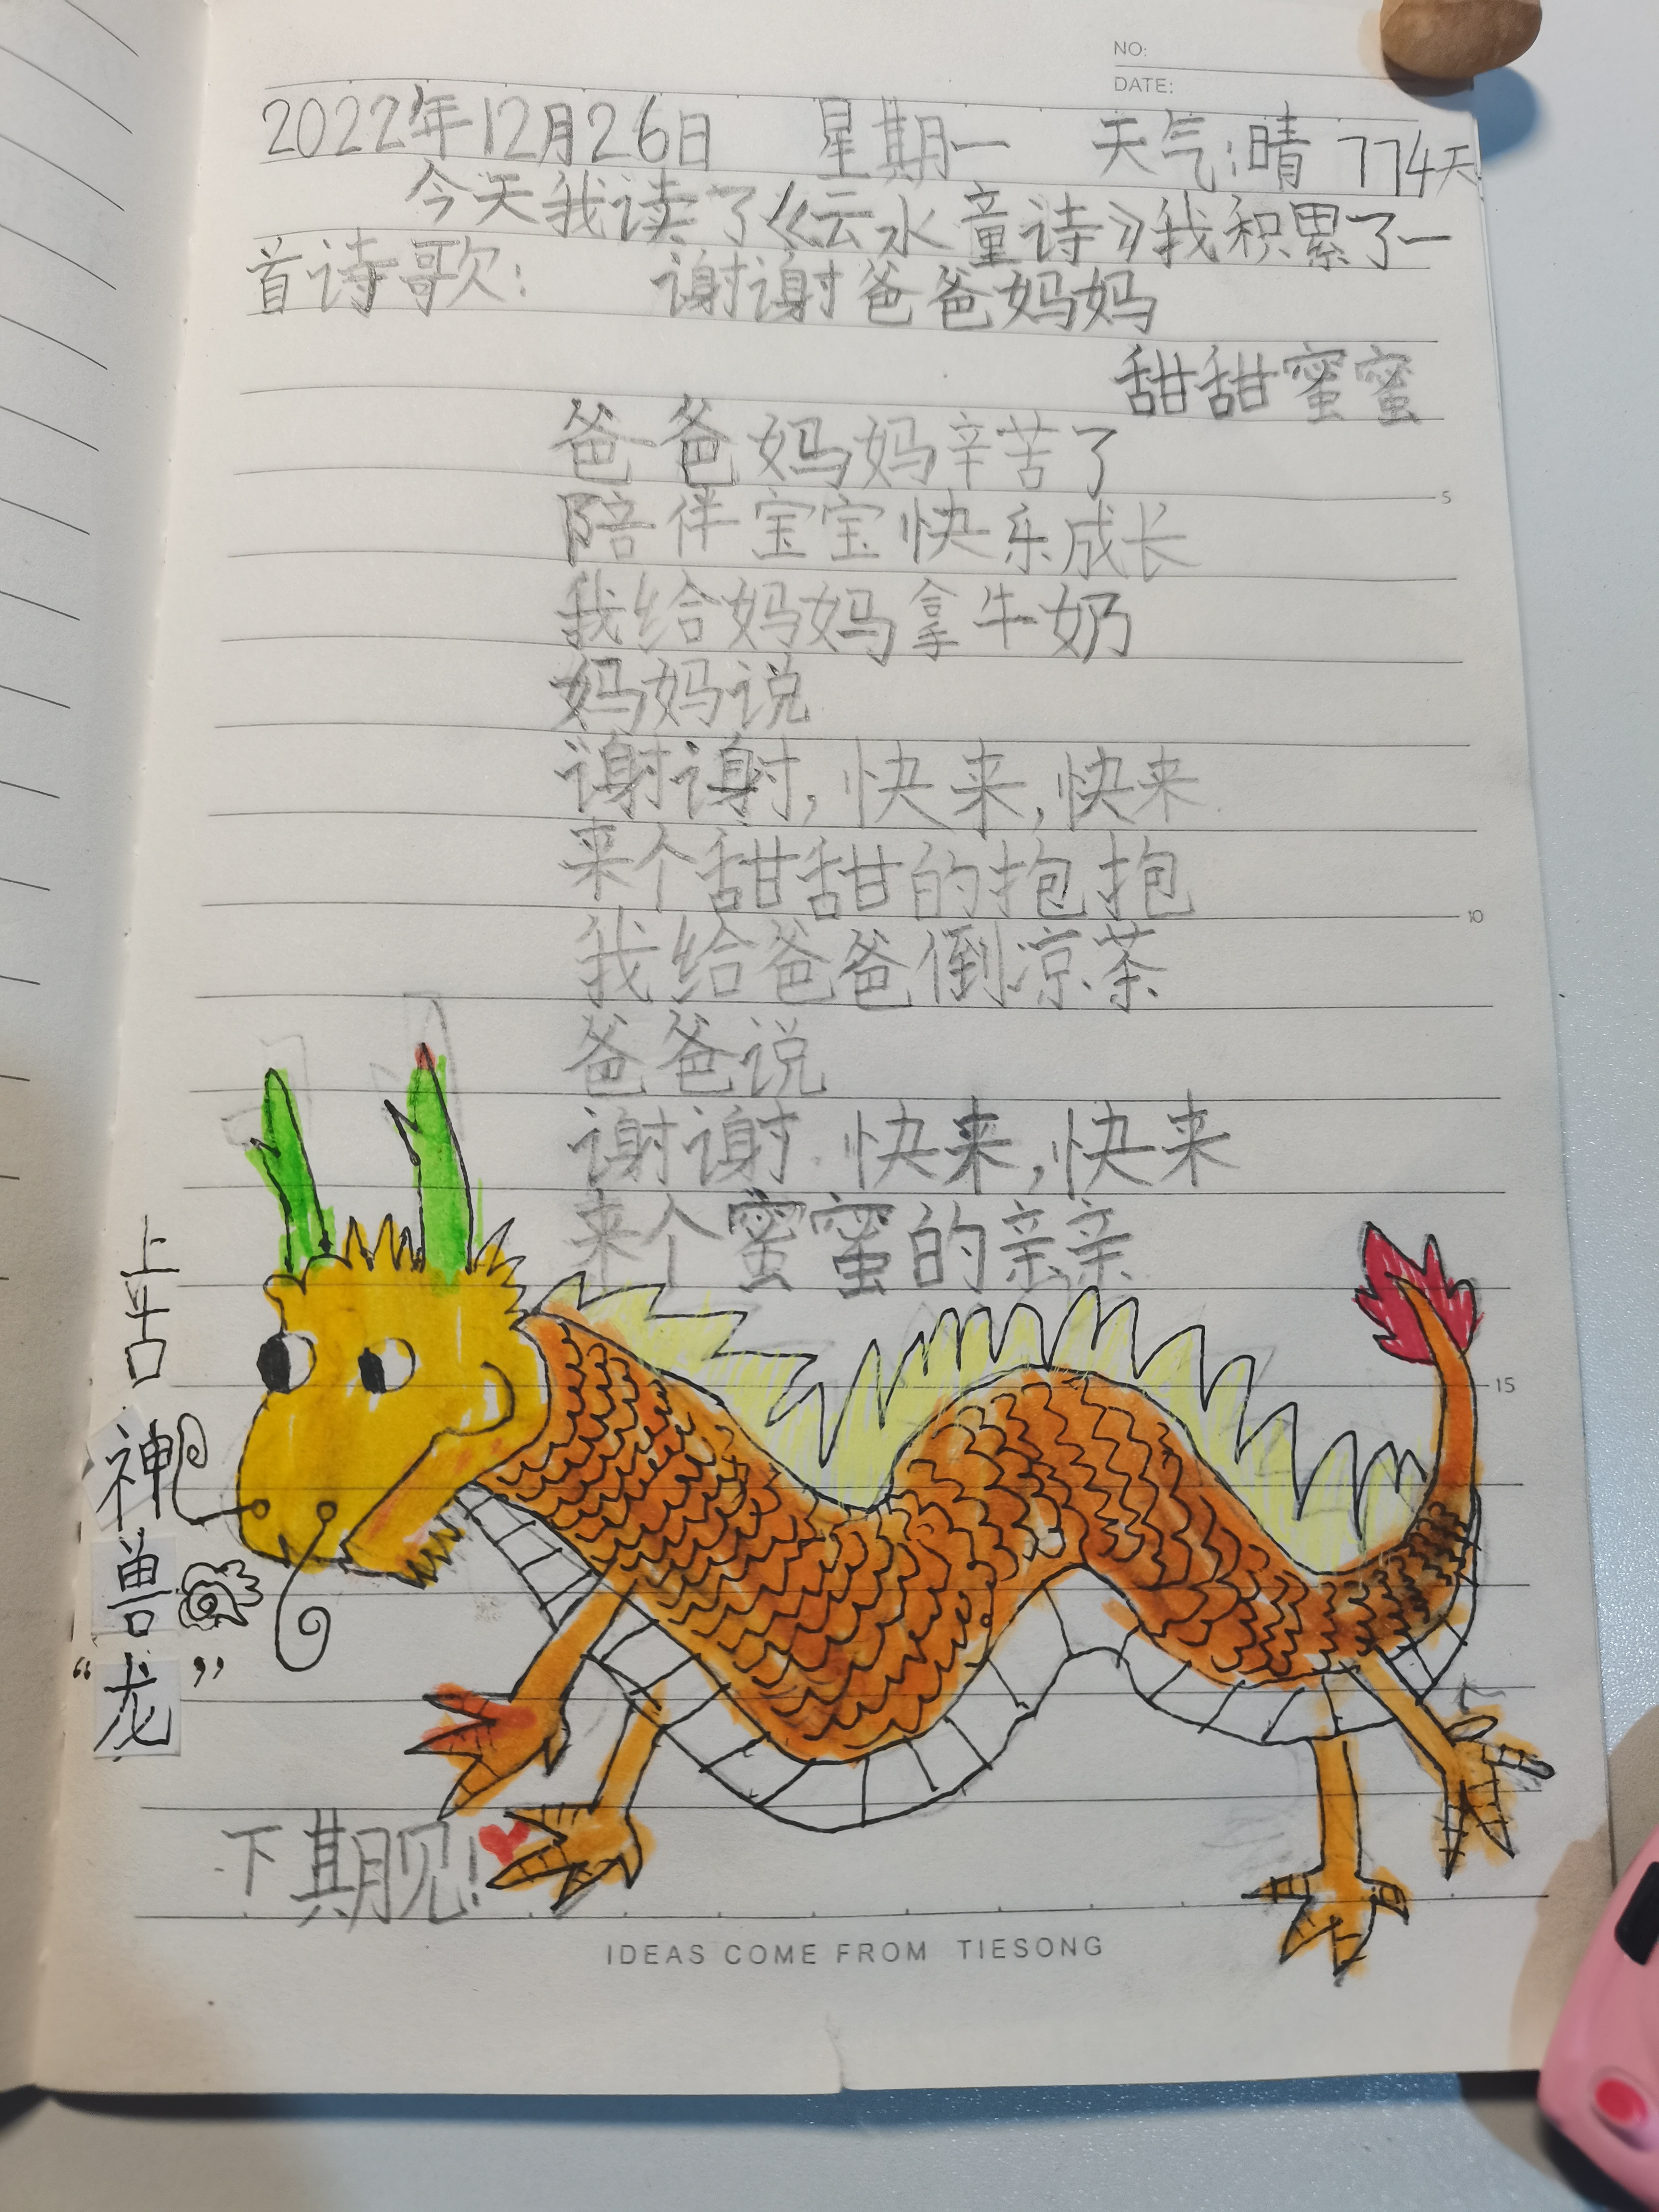 NO:
DATE:
2022年12月26日 星期一 天气:晴 774天
今天我读了《云水童诗》我积累了一
首诗歌: 谢谢爸爸妈妈
甜甜蜜蜜
爸爸妈妈辛苦了
陪伴宝宝快乐成长
我给妈妈拿牛奶
妈妈说
谢谢,快来,快来
来个甜甜的抱抱
我给爸爸倒凉茶
爸爸说
谢谢,快来,快来
来个蜜蜜的亲亲
上古神兽“龙”
下期见!
5
10
15
IDEAS COME FROM TIESONG